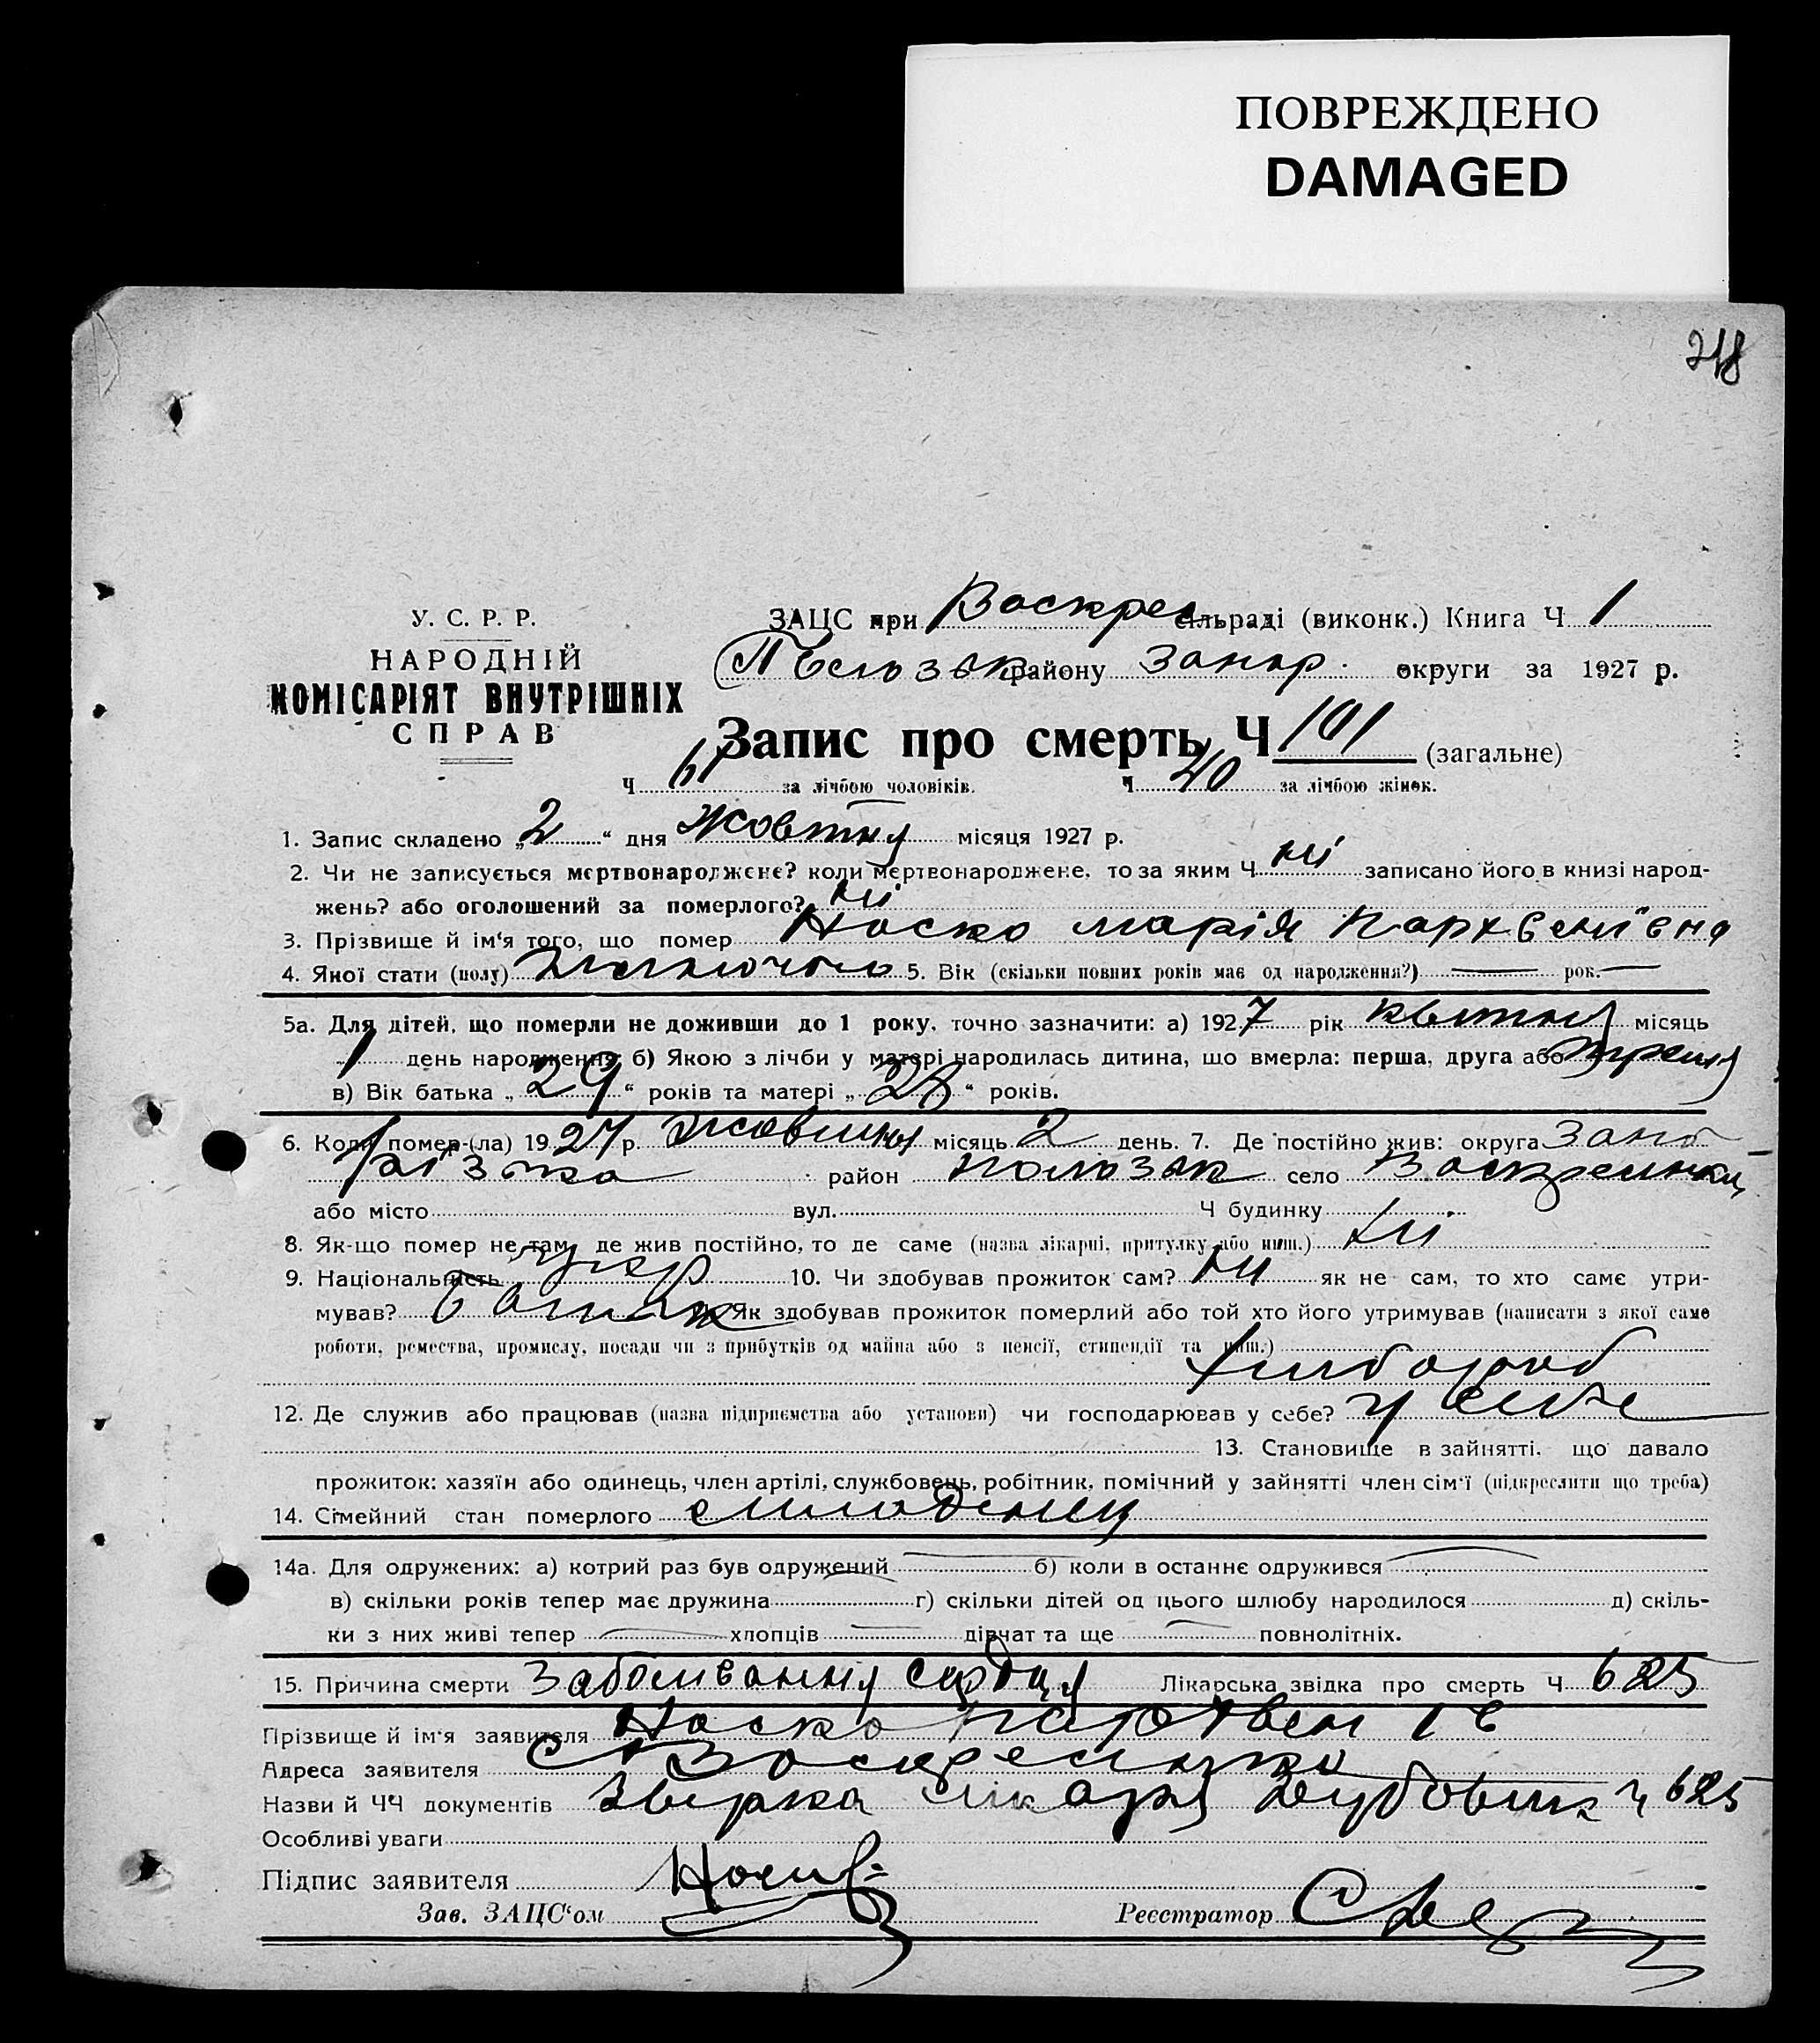 ПОВРЕЖДЕНО
DAMAGED
218
У. С. Р. Р.
НАРОДНІЙ
КОМІСАРІЯТ ВНУТРІШНІХ
СПРАВ
ЗАЦС при Воскрес сільраді (виконк.) Книга Ч 1
району Запор. округи за 1927 р.
Запис про смерть Ч 101 (загальне)
Ч 61 за лічбою чоловіків. Ч 40 за лічбою жінок.
1. Запис складено „2“ дня Жовтня місяця 1927 р.
2. Чи не записується мертвонароджене? коли мертвонароджене, то за яким Ч ні записано його в книзі народ-
жень? або оголошений за померлого? ні
3. Прізвище й ім‘я того, що помер Носко Марія Пархвентіївна
4. Якої стати (полу) 5. Вік (скільки повних років має од народження?) — рок. —
5а. Для дітей, що померли не доживши до 1 року, точно зазначити: а) 1927 рік квітня місяць
1 день народження; б) Якою з лічби у матері народилась дитина, що вмерла: перша, друга або третя
в) Вік батька „29“ років та матері „28“ років.
6. Коли помер-(ла) 1927 р. Жовтня місяць 2 день. 7. Де постійно жив: округа Запо
різька район Полозьк село Воскресенка
або місто вул. Ч будинку
8. Як-що помер не там, де жив постійно, то де саме (назва лікарні, притулку або инш.) ні
9. Національність укр 10. Чи здобував прожиток сам? ні як не сам, то хто саме утри-
мував? батько 11. Як здобував прожиток померлий або той хто його утримував (написати з якої саме
роботи, ремества, промислу, посади чи з прибутків од майна або з пенсії, стипендії та инш.)
хлібороб
12. Де служив або працював (назва підприємства або установи) чи господарював у себе? у себе
13. Становище в зайнятті, що давало
прожиток: хазяїн або одинець, член артілі, службовець, робітник, помічний у зайнятті член сім‘ї (підкреслити що треба)
14. Сімейний стан померлого
14а. Для одружених: а) котрий раз був одружений б) коли в останнє одружився
в) скільки років тепер має дружина г) скільки дітей од цього шлюбу народилося д) скіль-
ки з них живі тепер хлопців дівчат та ще повнолітніх.
15. Причина смерти Заболівання сердця Лікарська звідка про смерть Ч 625
Прізвище й ім‘я заявителя Носко
Адреса заявителя С Воскресенка
Назви й ЧЧ документів лікаря ч 625
Особливі уваги
Підпис заявителя
Зав. ЗАЦС‘ом Реєстратор